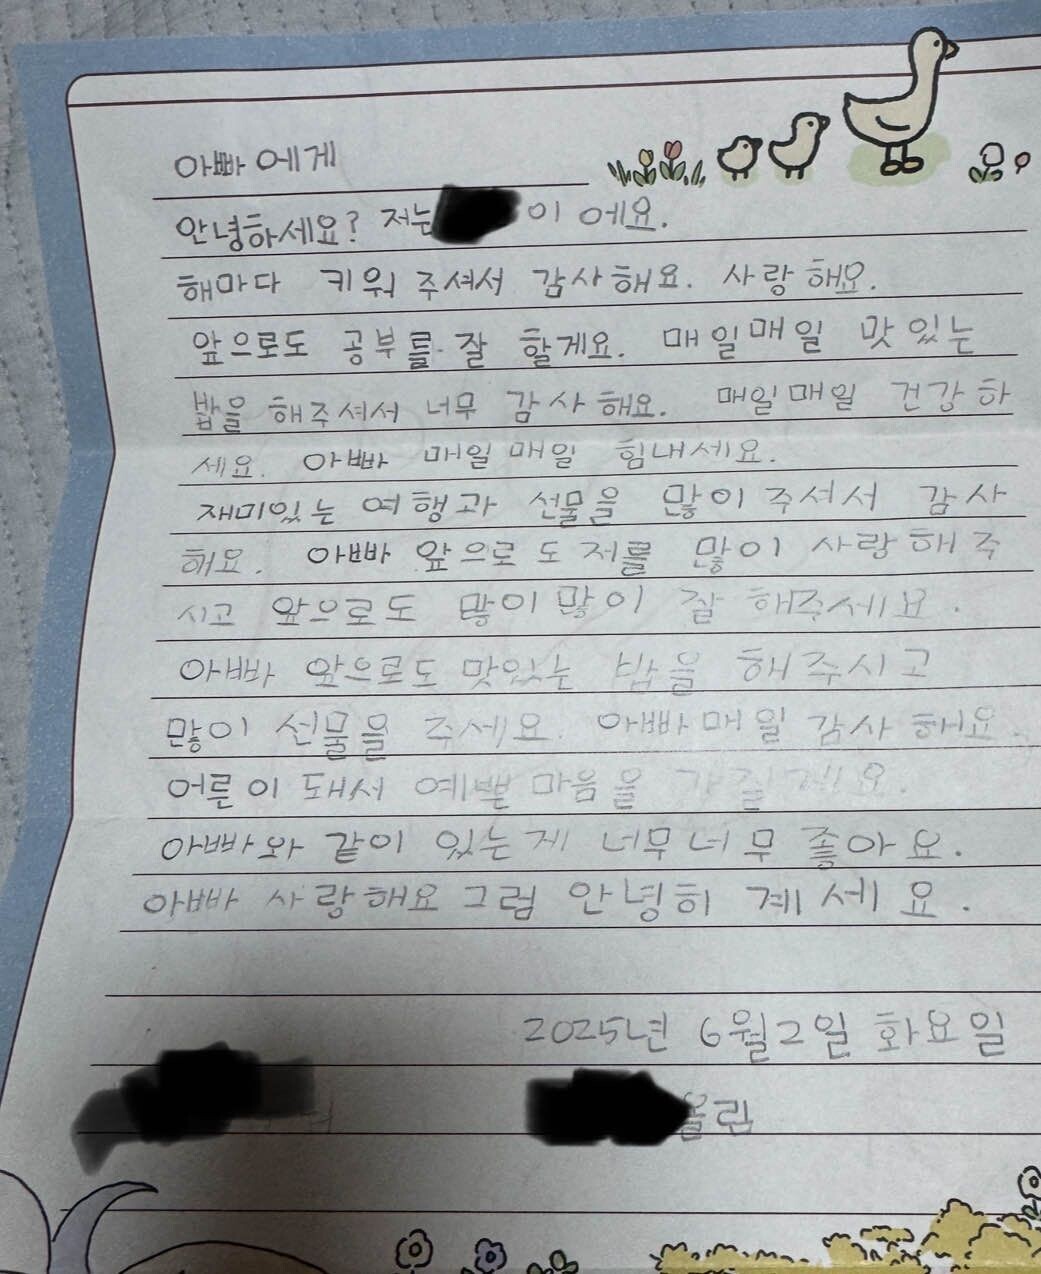 아빠에게
안녕하세요? 저는 이에요.
해마다 키워 주셔서 감사해요. 사랑해요.
앞으로도 공부를 잘 할게요. 매일매일 맛있는
밥을 해주셔서 너무 감사해요. 매일매일 건강하
세요. 아빠 매일매일 힘내세요.
재미있는 여행과 선물을 많이 주셔서 감사
해요. 아빠 앞으로도 저를 많이 사랑해 주
시고 앞으로도 많이 많이 잘 해주세요.
아빠 앞으로도 맛있는 밥을 해주시고
많이 선물을 주세요. 아빠 매일 감사해요.
어른이 돼서 예쁜 마음을 가질게요.
아빠와 같이 있는게 너무너무 좋아요.
아빠 사랑해요 그럼 안녕히 계세요.
2025년 6월2일 화요일
올림